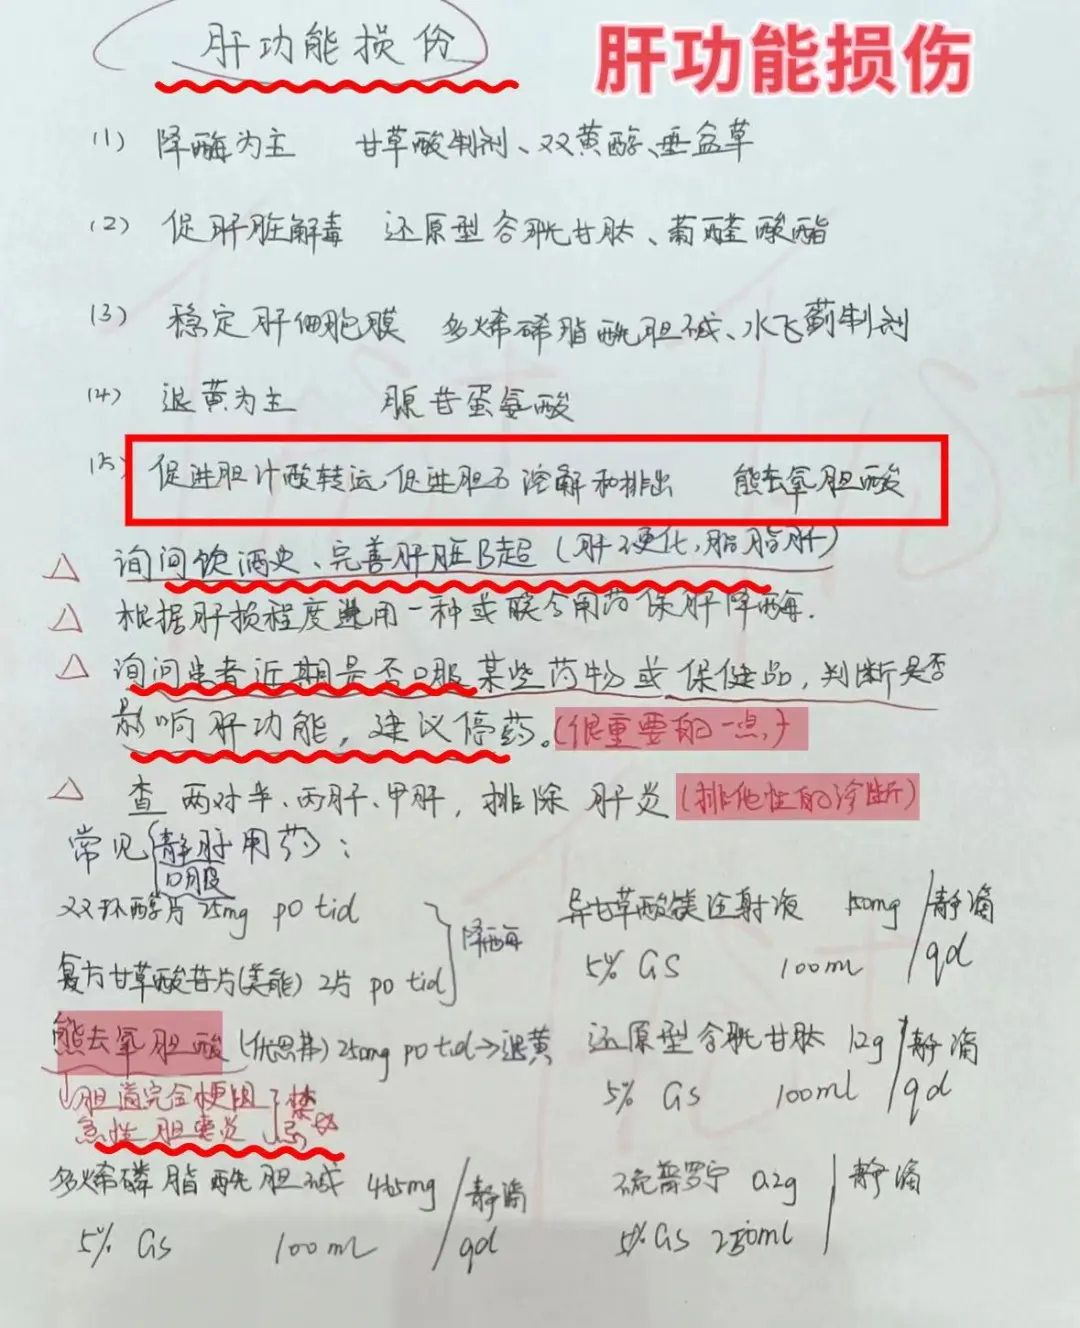 肝功能损伤
肝功能损伤
(1) 降酶为主 甘草酸制剂、双黄醇、垂盆草
(2) 促肝脏解毒 还原型谷胱甘肽、葡醛酸酯
(3) 稳定肝细胞膜 多烯磷脂酰胆碱、水飞蓟制剂
(4) 退黄为主 腺苷蛋氨酸
(5) 促进胆汁酸转运,促进胆石溶解和排出 熊去氧胆酸
△ 询问饮酒史、完善肝脏B超(肝硬化,脂肪肝)
△ 根据肝损程度选用一种或联合用药保肝降酶.
△ 询问患者近期是否口服某些药物或保健品,判断是否
影响肝功能,建议停药。(很重要的一点,)
△ 查两对半、丙肝、甲肝,排除肝炎(排他性的诊断)
常见{静脉用药}:
口服
双环醇片 25mg po tid
复方甘草酸苷片(美能) 2片 po tid
降酶
熊去氧胆酸(优思弗) 250mg po tid→退黄
胆道完全梗阻
急性胆囊炎
禁忌
多烯磷脂酰胆碱 465mg
5% GS 100ml
静滴
qd
异甘草酸镁注射液 150mg
5% GS 100ml
静滴
qd
还原型谷胱甘肽 1.2g
5% GS 100ml
静滴
qd
硫普罗宁 0.2g
5% GS 250ml
静滴